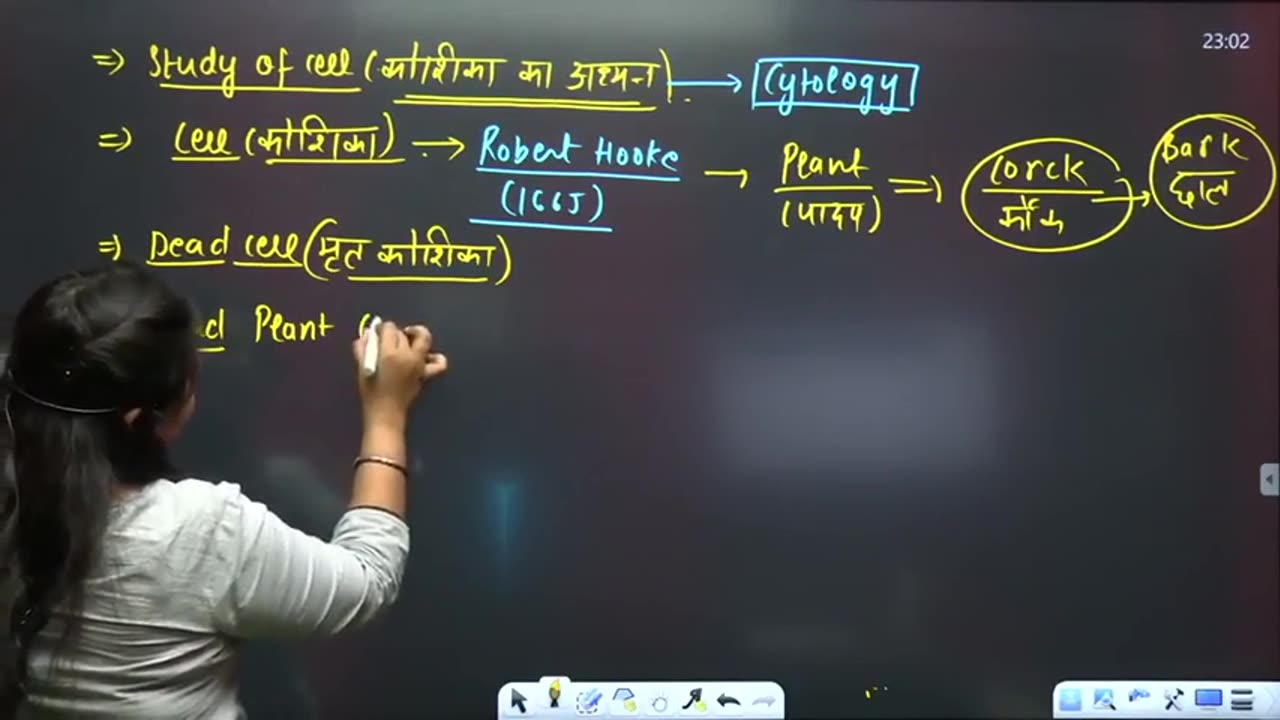 23:02
⇒ Study of cell (कोशिका का अध्यन) → Cytology
⇒ Cell (कोशिका) → Robert Hooke (1665) → Plant (पादप) ⇒ Corck कॉर्क → Bark छाल
⇒ Dead cell (मृत कोशिका)
Plant (